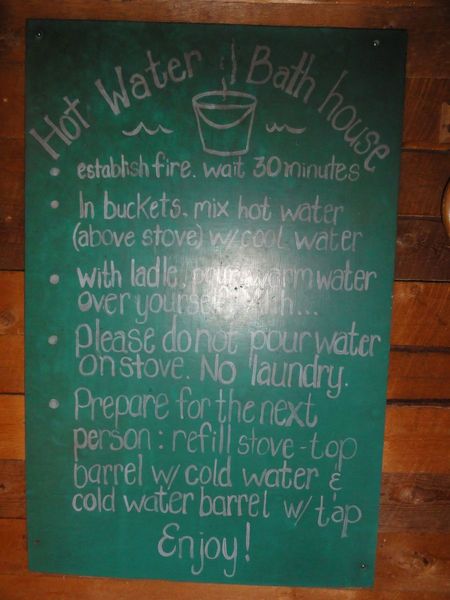 Hot Water Bath house
establish fire. wait 30 minutes
In buckets. mix hot water
(above stove) w/cool water
with ladle, pour warm water
over yourself. ahh...
Please do not pour water
on stove. No laundry.
Prepare for the next
person: refill stove-top
barrel w/ cold water &
cold water barrel w/ tap
Enjoy!